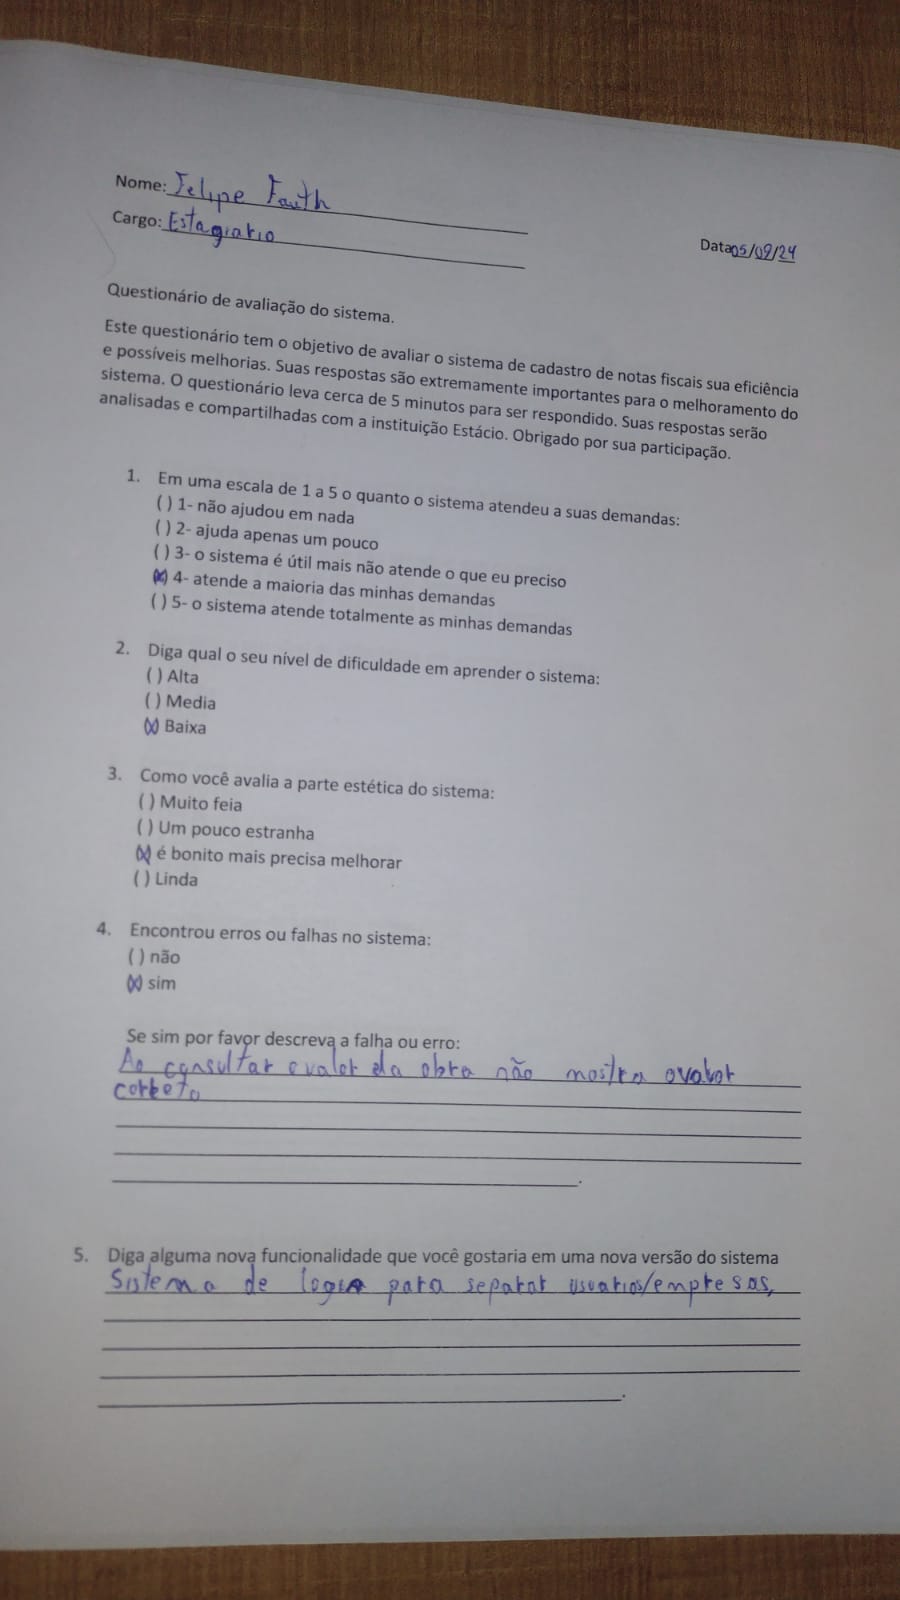 Nome: Felipe Fauth
Cargo: Estagiario
Data 05/09/24
Questionário de avaliação do sistema.
Este questionário tem o objetivo de avaliar o sistema de cadastro de notas fiscais sua eficiência
e possíveis melhorias. Suas respostas são extremamente importantes para o melhoramento do
sistema. O questionário leva cerca de 5 minutos para ser respondido. Suas respostas serão
analisadas e compartilhadas com a instituição Estácio. Obrigado por sua participação.
1. Em uma escala de 1 a 5 o quanto o sistema atendeu a suas demandas:
( ) 1- não ajudou em nada
( ) 2- ajuda apenas um pouco
( ) 3- o sistema é útil mais não atende o que eu preciso
(X) 4- atende a maioria das minhas demandas
( ) 5- o sistema atende totalmente as minhas demandas
2. Diga qual o seu nível de dificuldade em aprender o sistema:
( ) Alta
( ) Media
(X) Baixa
3. Como você avalia a parte estética do sistema:
( ) Muito feia
( ) Um pouco estranha
(X) é bonito mais precisa melhorar
( ) Linda
4. Encontrou erros ou falhas no sistema:
( ) não
(X) sim
Se sim por favor descreva a falha ou erro:
Ao consultar o valor da obra não mostra o valor
correto
5. Diga alguma nova funcionalidade que você gostaria em uma nova versão do sistema
Sistema de login para separar usuarios/empresas,